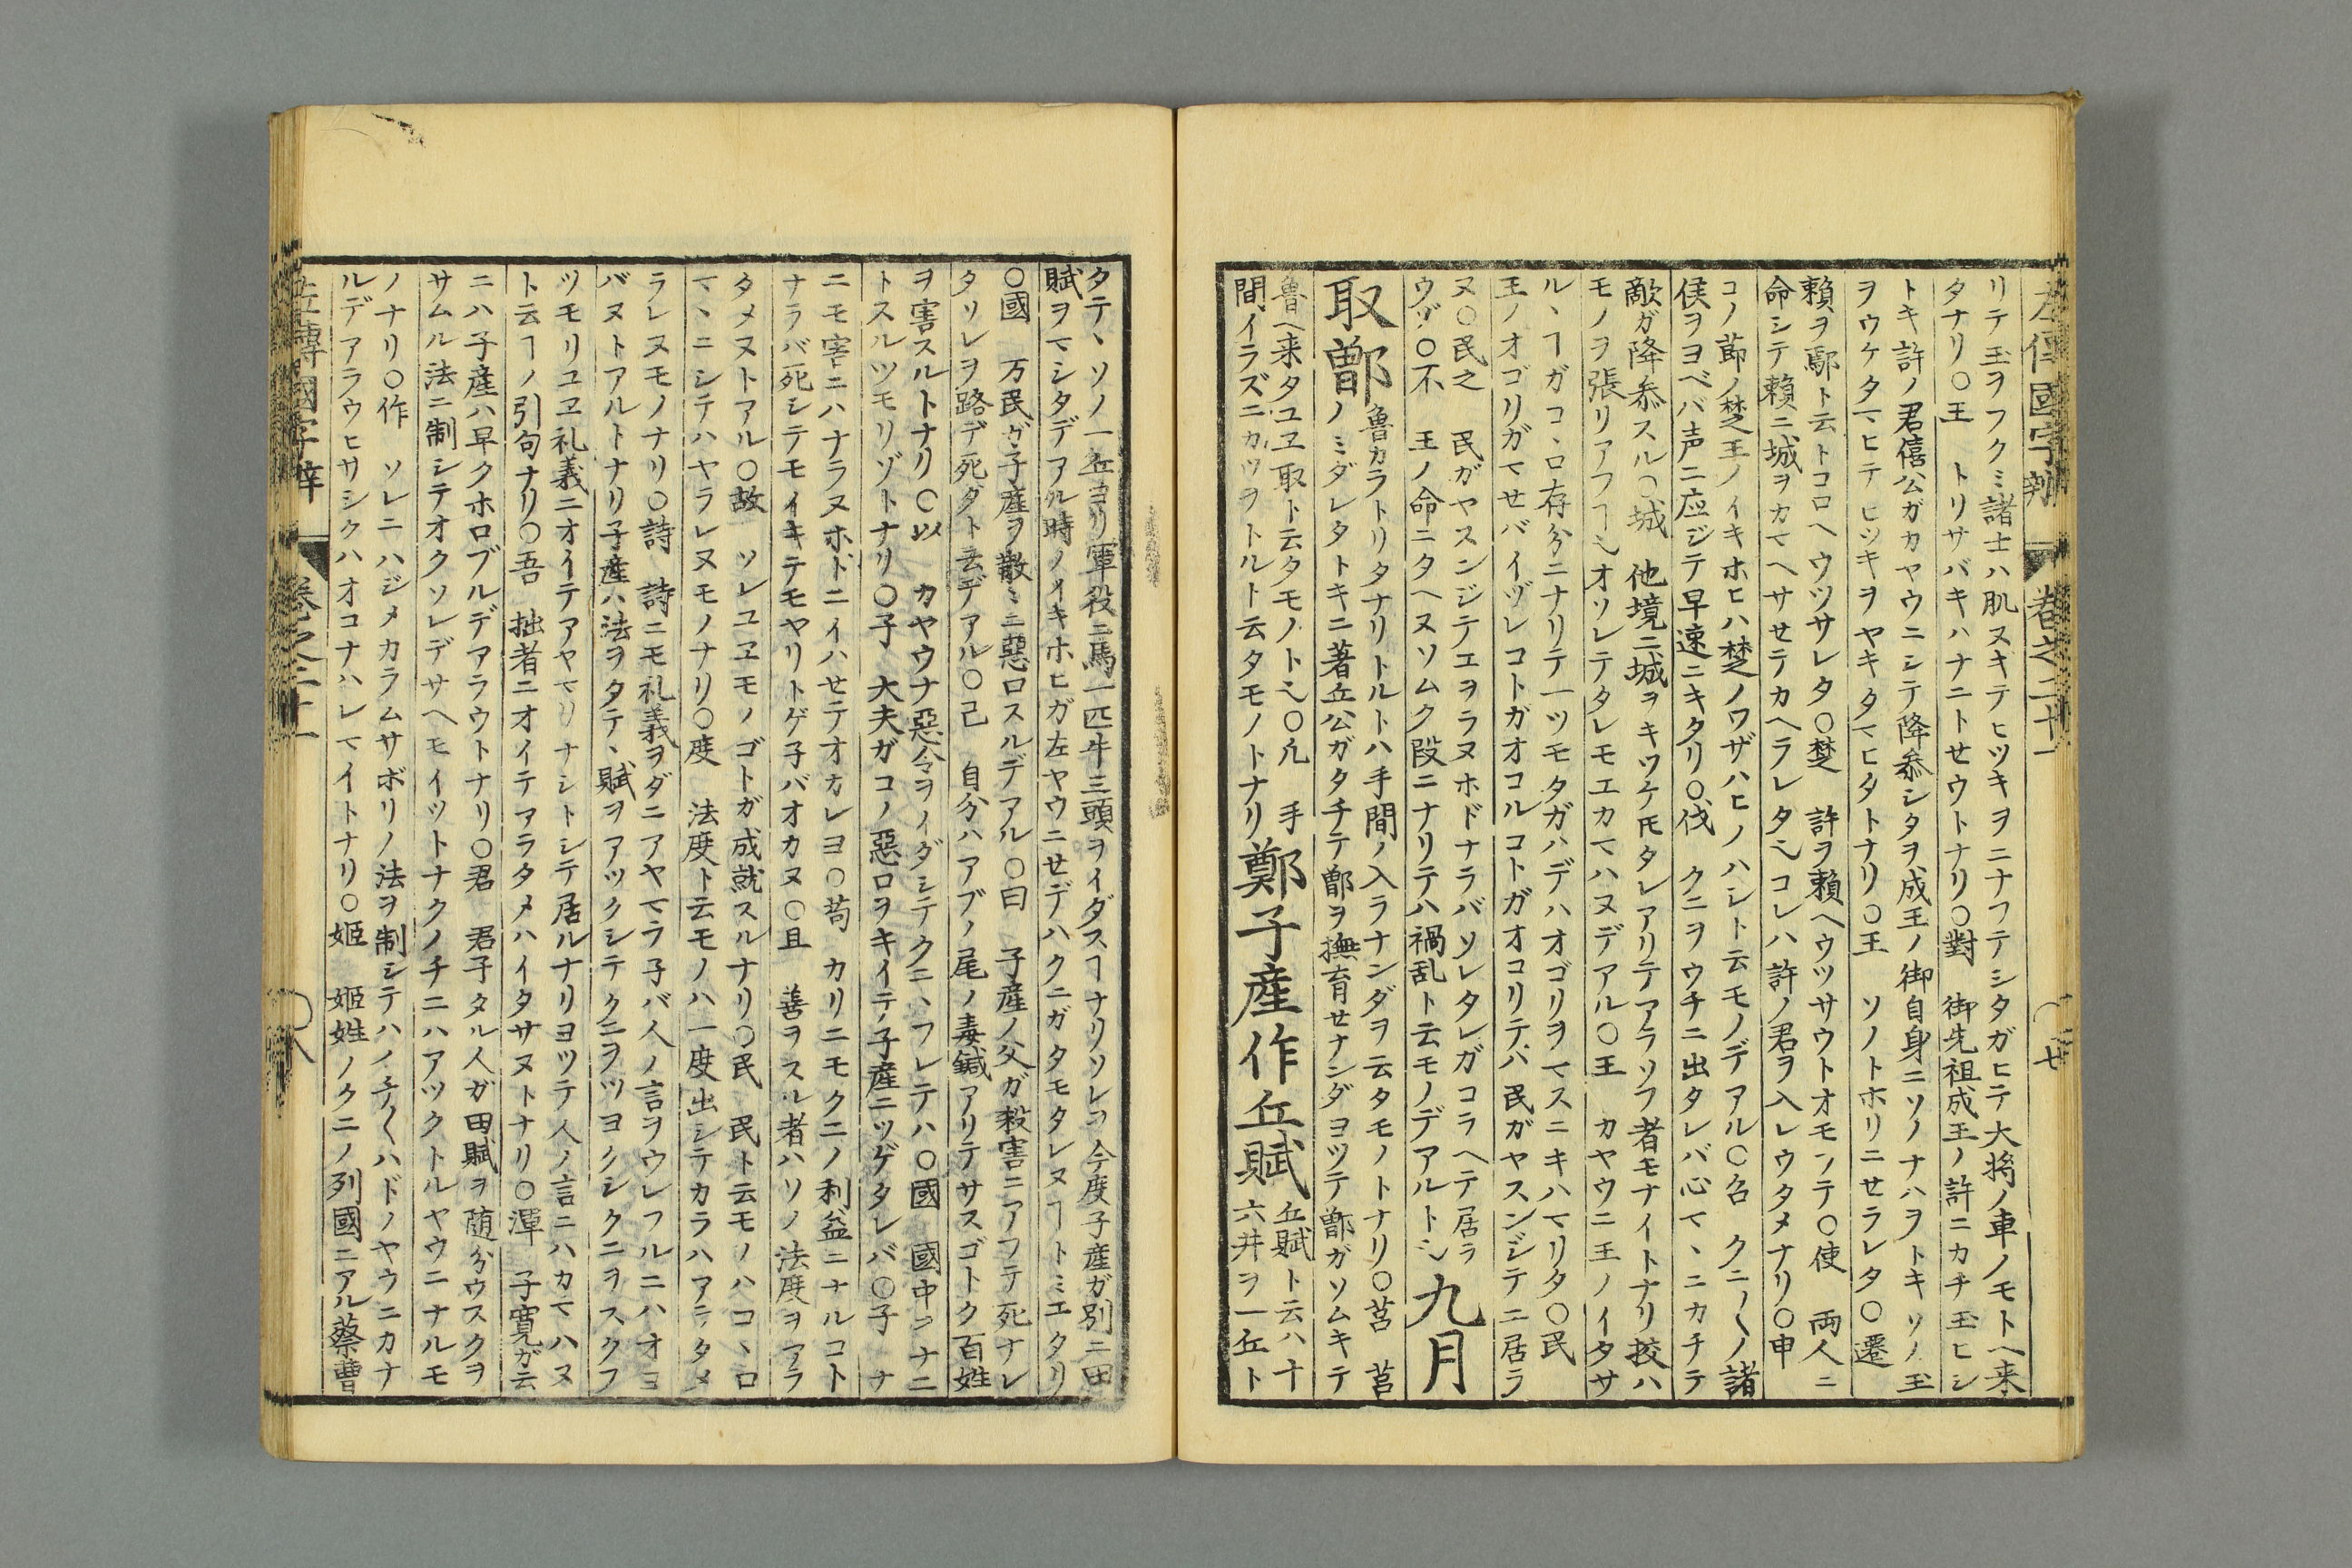 左傳國字辨 卷之二十一
リテ玉ヲフクミ諸士ハ肌ヌキテヒツキヲニナフテシタガヒテ大将ノ車ノモトヘ来
タナリ〇王 トリサバキハナニトせウトナリ〇對 御先祖成王ノ許ニカチ玉ヒシ
トキ許ノ君僖公ガカヤウニシテ降参シタヲ成王ノ御自身ニソノナハヲトキソノ玉
ヲウケタマヒテヒツキヲヤキタマヒタトナリ〇王 ソノトホリニせラレタ〇遷
賴ヲ鄢ト云トコロヘウツサレタ〇楚 許ヲ賴ヘウツサウトオモンテ〇使 両人ニ
命シテ賴ニ城ヲカマヘサせテカヘラレタ〆コレハ許ノ君ヲ入レウタメナリ〇申
コノ節ノ楚王ノイキホヒハ楚ノワザハヒノハシト云モノデアル〇召 クニ〱ノ諸
侯ヲヨベバ声ニ应ジテ早速ニキタリ〇伐 クニヲウチニ出タレバ心マヽニカチテ
敵ガ降参スル〇城 他境ニ城ヲキヅケ𪜈タレアリテアラソフ者モナイトナリ挍ハ
モノヲ張リアフヿ〆オソレテタレモエカマハヌデアル〇王 カヤウニ王ノイタサ
ルヽヿガコヽロ存分ニナリテ一ツモタガハデハオゴリヲマスニキハマリタ〇民
王ノオゴリガマせバイヅレコトガオコルコトガオコリテハ民ガヤスンジテニ居ラ
ヌ〇民之 民ガヤスンジテエヲラヌホドナラバソレタレガコラヘテ居ラ
ウゾ〇不 王ノ命ニタヘヌソムク段ニナリテハ禍乱ト云モノデアルト〆九月
取鄫魯カラトリタナリトルトハ手間ノ入ラナンダヲ云タモノトナリ〇莒 莒
ノミダレタトキニ著丘公ガタチテ鄫ヲ撫育せナンダヨツテ鄫ガソムキテ
魯ヘ来タユヱ取ト云タモノト〆〇凡 手
間イラズニカツヲトルト云タモノトナリ鄭子産作丘賦丘賦ト云ハ十
六井ヲ一丘ト
タテヽソノ一丘ヨリ軍役ニ馬一匹牛三頭ヲイダスヿナリソレヲ今度子産ガ別ニ田
賦ヲマシタデアル時ノイキホヒガ左ヤウニせデハクニガタモタレヌヿトミエタリ
〇國 万民ガ子産ヲ散ミニ惡口スルデアル〇曰 子産ノ父ガ殺害ニアフテ死ナレ
タリレヲ路デ死ダト云デアル〇己 自分ハアブノ尾ノ毒鍼アリテサスゴトク百姓
ヲ害スルトナリ〇以 カヤウナ惡令ヲイダシテクニヽフレテハ〇國 國中ヲナニ
トスルツモリゾトナリ〇子 大夫ガコノ惡口ヲキイテ子産ニツゲタレバ〇子 ナ
ニモ害ニハナラヌホドニイハせテオカレヨ〇苟 カリニモクニノ利益ニナルコト
ナラバ死シテモイキテモヤリトゲ子バオカヌ〇且 善ヲスル者ハソノ法度ヲアラ
タメヌトアル〇故 ソレユヱモノゴトガ成就スルナリ〇民 民ト云モノハコヽロ
マヽニシテハヤラレヌモノナリ〇度 法度ト云モノハ一度出シテカラハアラタメ
ラレヌモノナリ〇詩 詩ニモ礼義ヲダニアヤマラ子バ人ノ言ヲウレフルニハオヨ
バヌトアルトナリ子産ハ法ヲタテヽ賦ヲアツクシテクニヲツヨクシクニヲスクフ
ツモリユヱ礼義ニオイテアヤマリナシトシテ居ルナリヨツテ人ノ言ニハカマハヌ
ト云ヿノ引句ナリ〇吾 拙者ニオイテアラタメハイタサヌトナリ〇渾 子寛ガ云
ニハ子産ハ早クホロブルデアラウトナリ〇君 君子タル人ガ田賦ヲ随分ウスクヲ
サムル法ニ制シテオクソレデサヘモイツトナクノチニハアツクトルヤウニナルモ
ノナリ〇作 ソレニハジメカラムサボリノ法ヲ制シテハノチ〱ハドノヤウニカナ
ルデアラウヒサシクハオコナハレマイトナリ〇姬 姬姓ノクニノ列國ニアル蔡曹
左傳國字辨 卷之二十一